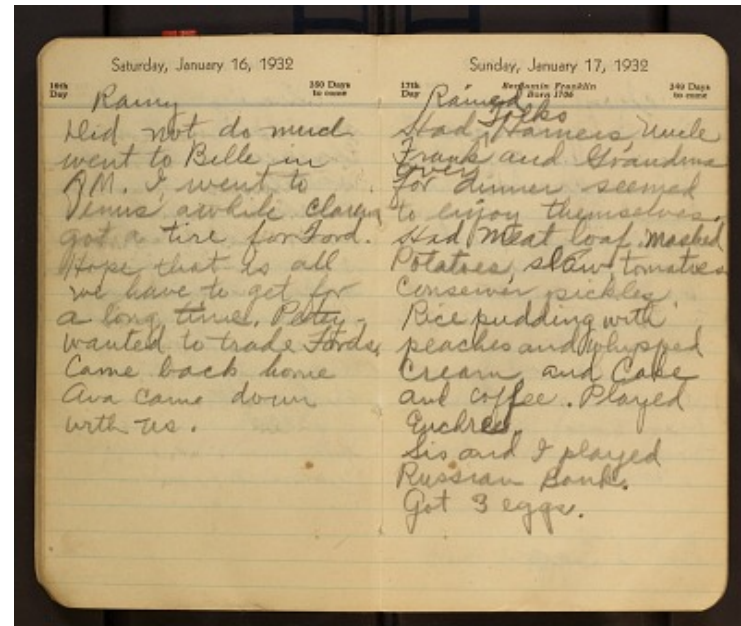 Saturday, January 16, 1932
16th Day
350 Days to come
Rainy
Did not do much
went to Belle in
P.M. I went to
Venus' awhile
got a tire for Ford.
Hope that is all
we have to get for
a long time.
wanted to trade Fords.
Came back home
Ava came down
with us.
Sunday, January 17, 1932
17th Day
Benjamin Franklin Born 1706
349 Days to come
Rained
Folks
Had Uncle
Frank and Grandma
over
for dinner seemed
to enjoy themselves.
Had meat loaf, mashed
Potatoes, slaw, tomatoes
pickles,
Rice pudding with
peaches and whipped
Cream and Cake
and coffee. Played
Euchre.
Sis and I played
Russian Bank.
Got 3 eggs.